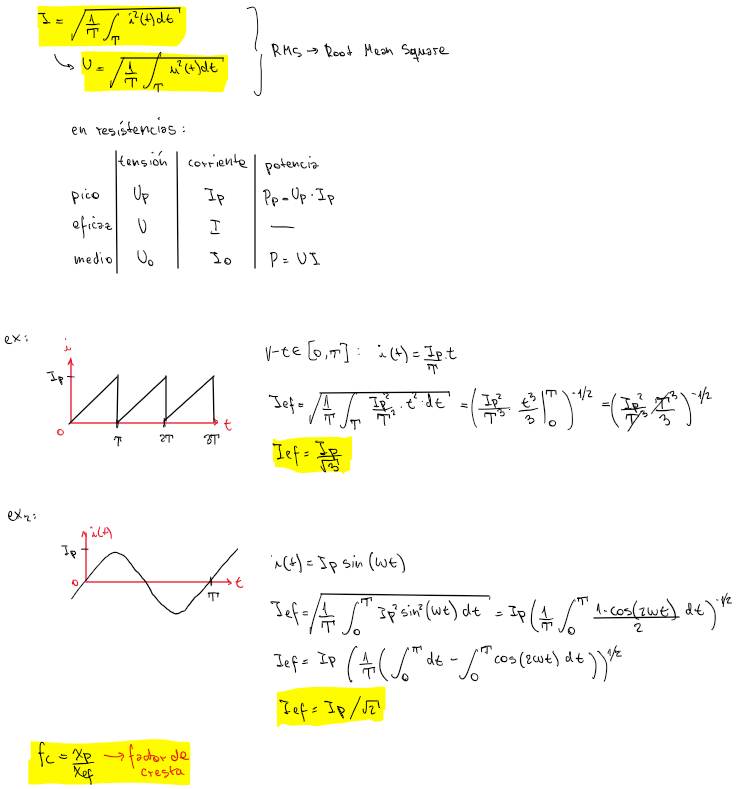 I = √(1/T ∫_T i²(t)dt)
↳ U = √(1/T ∫_T u²(t)dt)
RMS → Root Mean Square
en resistencias:
tensión | corriente | potencia
pico | Up | Ip | Pp = Up · Ip
eficaz | U | I | —
medio | U₀ | I₀ | P = UI
ex:
i
Ip
0 T 2T 3T t
∀t ∈ [0,T]: i(t) = Ip/T · t
Ief = √(1/T ∫_T Ip²/T² · t² · dt) = (Ip²/T³ · t³/3 |₀^T)^-1/2 = (Ip²/T³ · T³/3)^-1/2
Ief = Ip/√3
ex₂:
i(t)
Ip
0 T t
i(t) = Ip sin(ωt)
Ief = √(1/T ∫₀^T Ip² sin²(ωt) dt) = Ip (1/T ∫₀^T (1-cos(2ωt))/2 dt)^-1/2
Ief = Ip (1/T (∫₀^T dt - ∫₀^T cos(2ωt) dt))^1/2
Ief = Ip/√2
fc = Xp/Xef → factor de
cresta